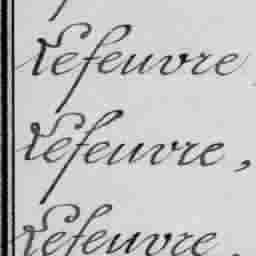 Lefeuvre
Lefeuvre,
Lefeuvre.